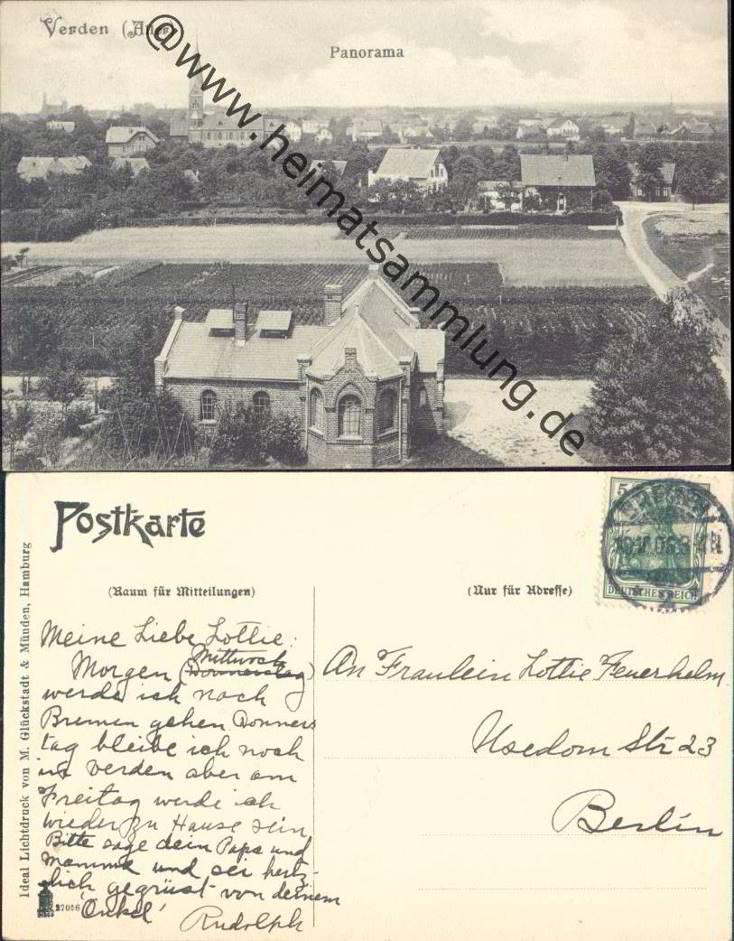 Verden (Aller)
Panorama
@www.heimatsammlung.de
Postkarte
(Raum für Mitteilungen)
(Nur für Adresse)
DEUTSCHES REICH
Meine Liebe Lottie:
Morgen (Donnerstag) Mittwoch
werde ich nach
Bremen gehen Donners
tag bleibe ich noch
in Verden aber am
Freitag werde ich
wieder zu Hause sein
Bitte sage dein Papa und
Mamma und sei herz-
lich gegrüst von deinem
'Onkel'
Rudolph
An Fraulein Lottie Feuerhelm
Usedom Str 23
Berlin
Ideal Lichtdruck von M. Glückstadt & Münden, Hamburg
27016